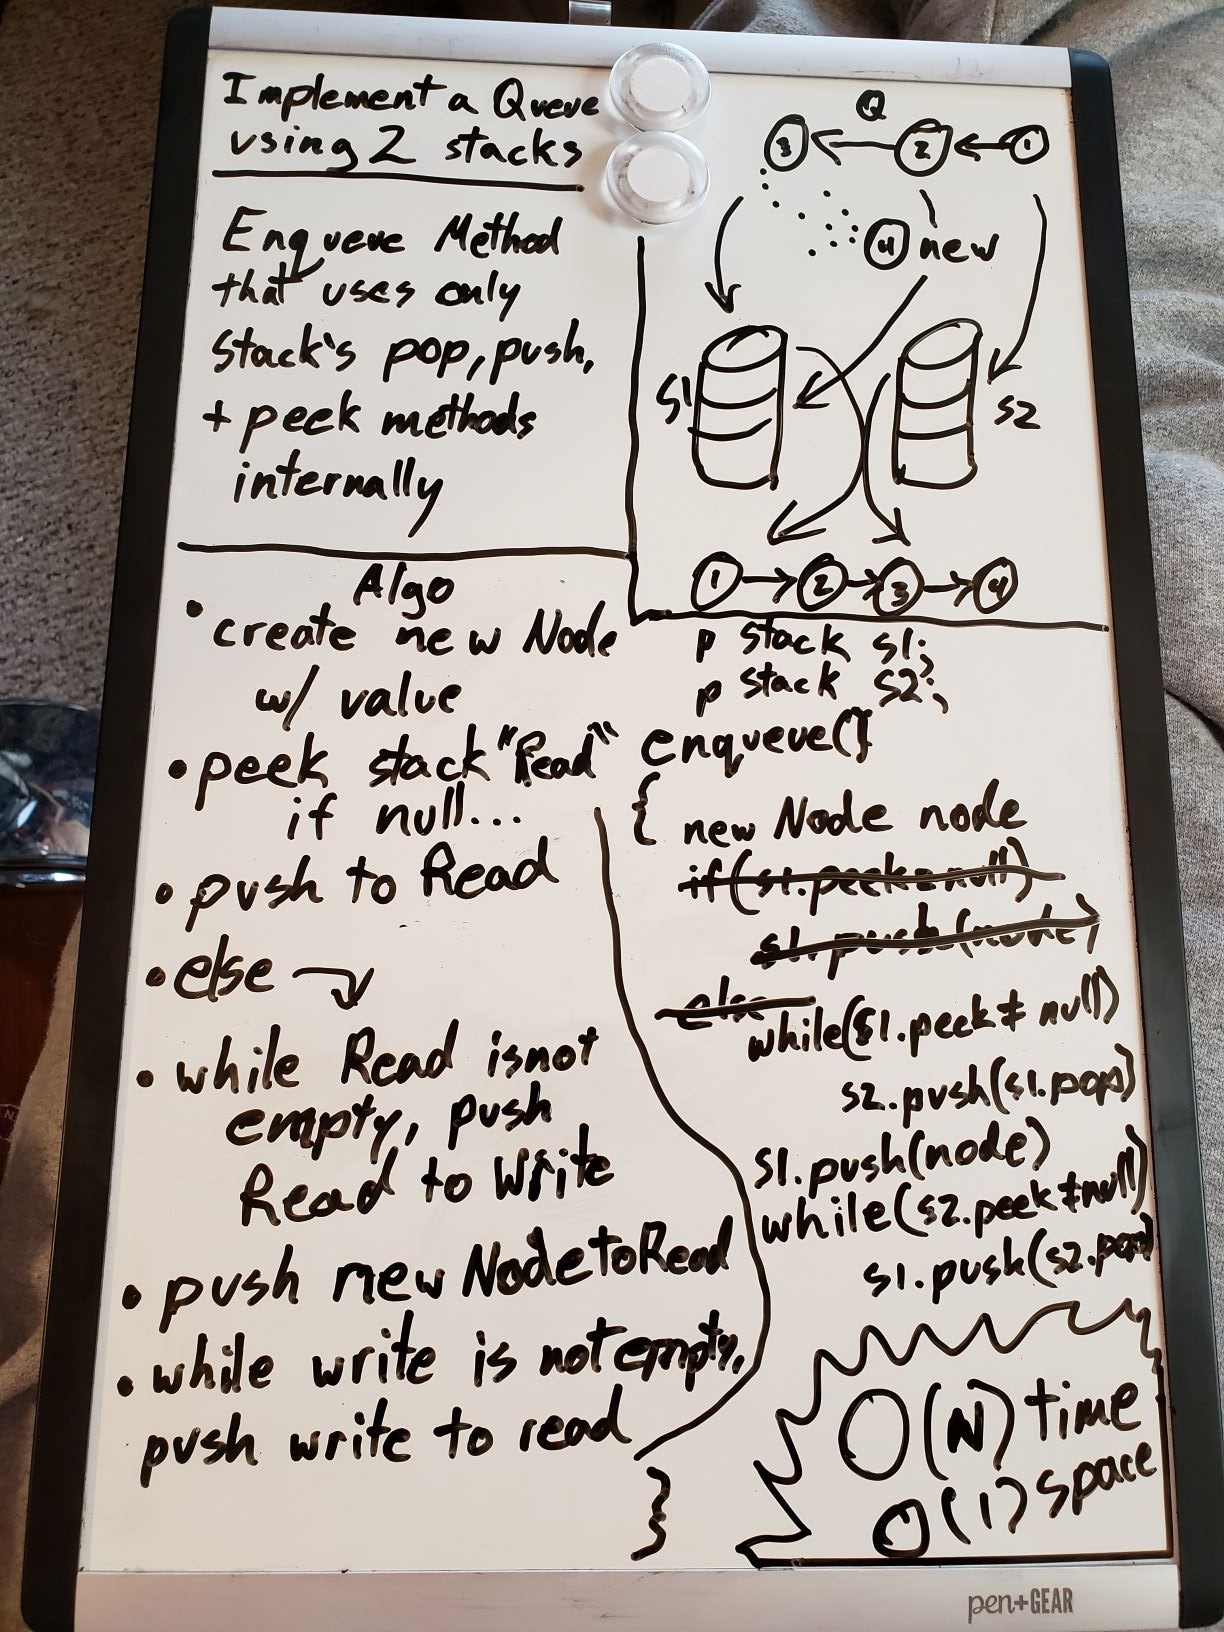 Implement a Queue
using 2 stacks
Enqueue Method
that uses only
Stack's pop, push,
+ peek methods
internally
Q
3 2 1
4 new
S1 S2
1 2 3 4
Algo
• create new Node
w/ value
• peek stack "Read"
if null...
• push to Read
• else
• while Read is not
empty, push
Read to Write
• push new Node to Read
• while write is not empty,
push write to read
p stack s1;
p stack s2;
enqueue()
{ new Node node
if(s1.peek=null)
s1.push(node)
else
while(s1.peek ≠ null)
s2.push(s1.pop)
s1.push(node)
while(s2.peek ≠ null)
s1.push(s2.pop)
}
O(N) time
O(1) space
pen+GEAR